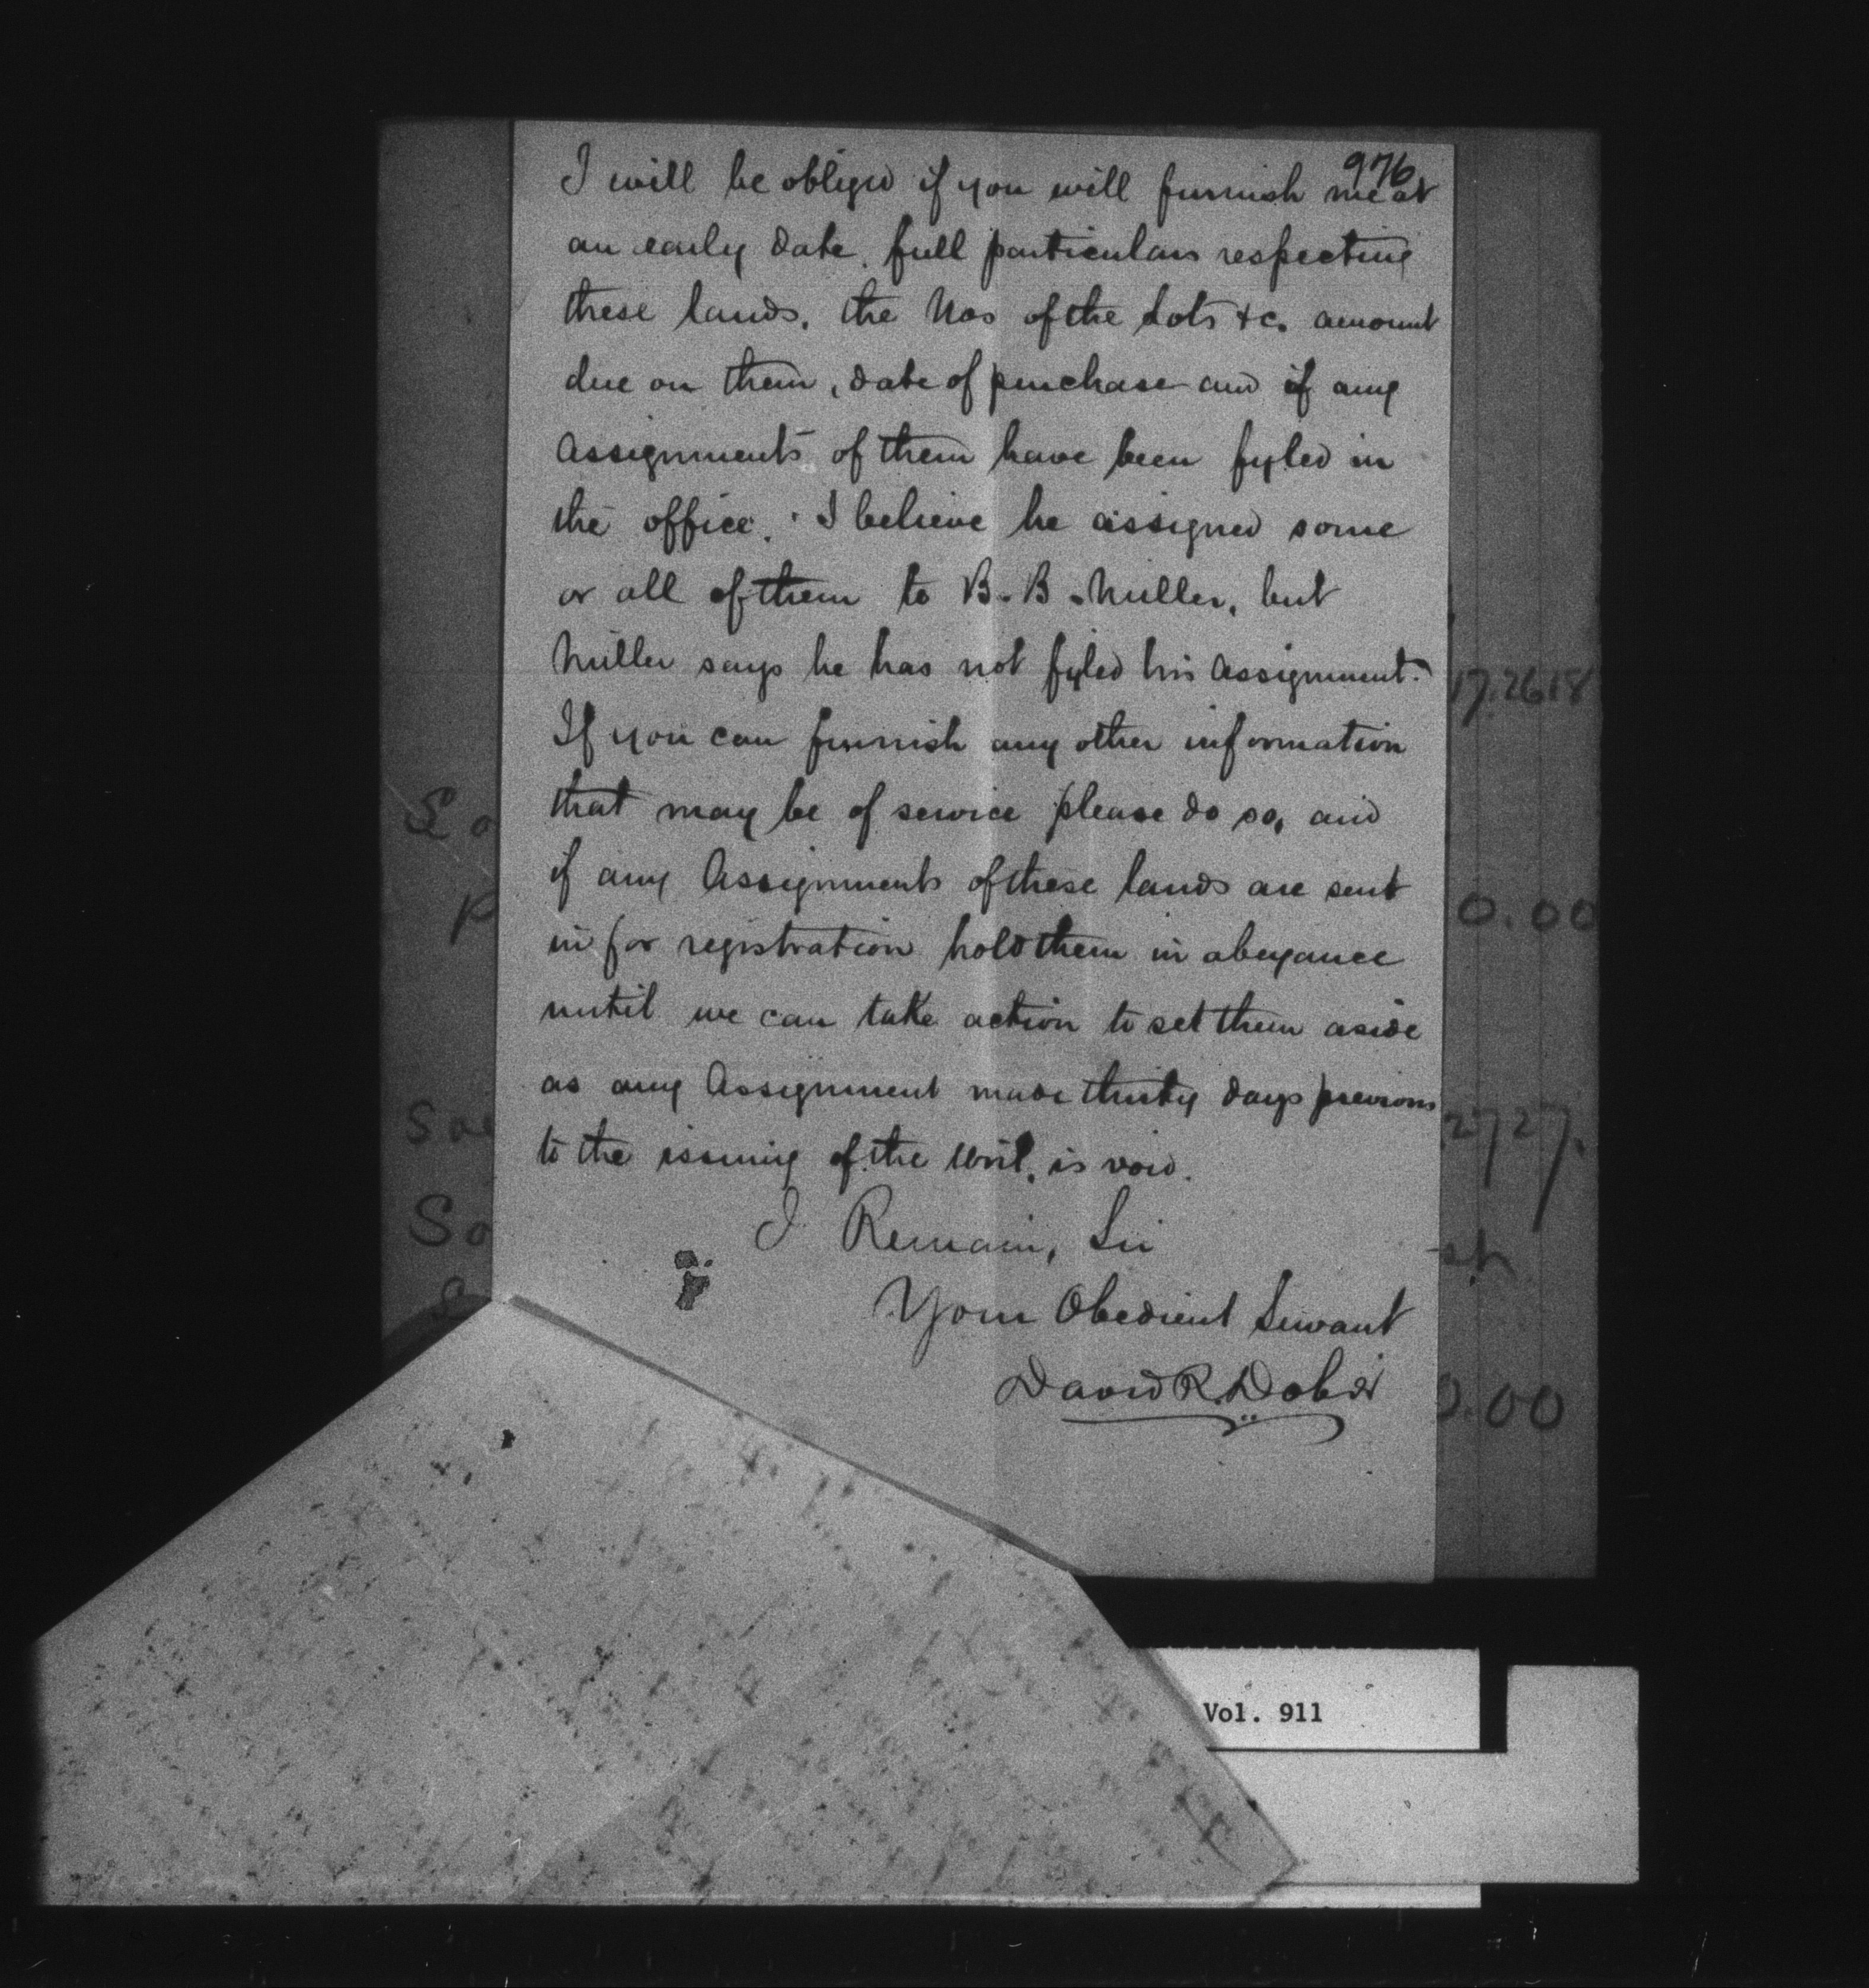 976
I will be obliged if you will furnish me at
an early date, full particulars respecting
these lands, the Nos of the Lots &c. amount
due on them, date of purchase and if any
Assignments of them have been fyled in
the office. I believe he assigned some
or all of them to B. B. Miller, but
Miller says he has not fyled his Assignment.
If you can furnish any other information
that may be of service please do so, and
if any Assignments of these lands are sent
in for registration hold them in abeyance
until we can take action to set them aside
as any Assignment made thirty days previous
to the issuing of the Writ, is void.
I Remain, Sir
Your Obedient Servant
David R. Dobie
17.2618
0.00
2727.
0.00
Vol. 911